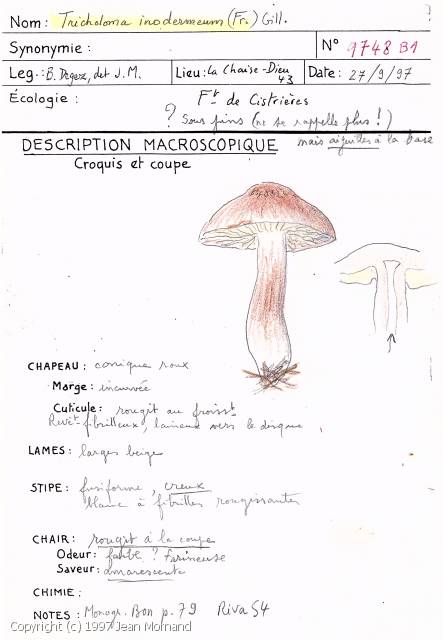 Nom: Tricholoma inodermeum (Fr.) Gill.
Synonymie: N° 9748 B1
Leg.: B. Degeze, det J.M. Lieu: La Chaise-Dieu 43 Date: 27/9/97
Écologie: Ft de Cistrières
? Sous pins (ne se rappelle plus!)
mais aiguilles à la base
DESCRIPTION MACROSCOPIQUE
Croquis et coupe
CHAPEAU: conique roux
Marge: incurvée
Cuticule: rougit au froisst
Revêt fibrilleux, laineux vers le disque
LAMES: larges beige
STIPE: fusiforme, creux
blanc à fibrilles rougissantes
CHAIR: rougit à la coupe
Odeur: faible? Farineuse
Saveur: amarescente
CHIMIE:
NOTES: Monogr. Bon p. 79 Riva 54
Copyright (c) 1997 Jean Mornand